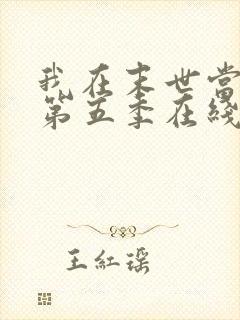 我在末世当
第五季在线
王红瑶